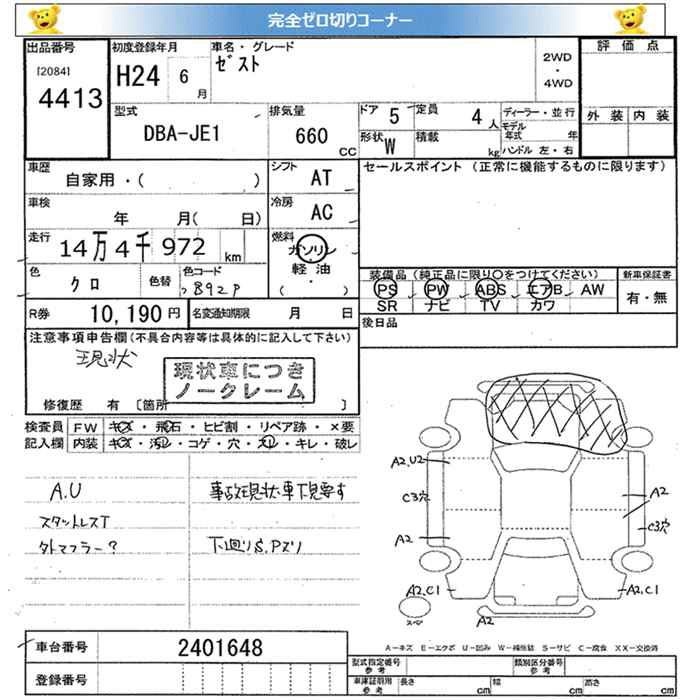 完全ゼロ切りコーナー
出品番号
[2084]
4413
初度登録年月
H24 6月
車名・グレード
ゼスト
2WD
・
4WD
評価点
外装 内装
型式
DBA-JE1
排気量
660 CC
ドア 5
定員 4人
形状 W
積載 kg
ディーラー・並行
モデル年式 年
ハンドル 左・右
車歴
自家用・( )
シフト
AT
セールスポイント (正常に機能するものに限ります)
車検
年 月( 日)
冷房
AC
走行
14万4千972 km
燃料
ガソリン
軽油
( ・ )
色
クロ
色替
色コード
B92P
装備品 (純正品に限り〇をつけてください)
新車保証書
PS PW ABS エアB AW
SR ナビ TV カワ
有・無
R券 10,190円
名変通知期限 月 日
後日品
注意事項申告欄 (不具合内容等は具体的に記入して下さい)
現状
現状車につき
ノークレーム
修復歴 有 [箇所 ]
検査員 FW キズ・飛石・ヒビ割・リペア跡・×要
記入欄 内装 キズ・汚レ・コゲ・穴・スレ・キレ・破レ
A.U
スタットレスT
外マフラー?
事故現状車下見要す
下廻りS.Pズリ
A2.U2
C3穴
A2
A2.C1
A2
C3穴
A2.C1
A2
スペ
A-キズ E-エクボ U-凹み W-補修跡 S-サビ C-腐食 XX-交換済
車台番号 2401648
登録番号
型式指定番号 参考
類別区分番号 参考
車庫証明用 参考 長さ cm 幅 cm 高さ cm